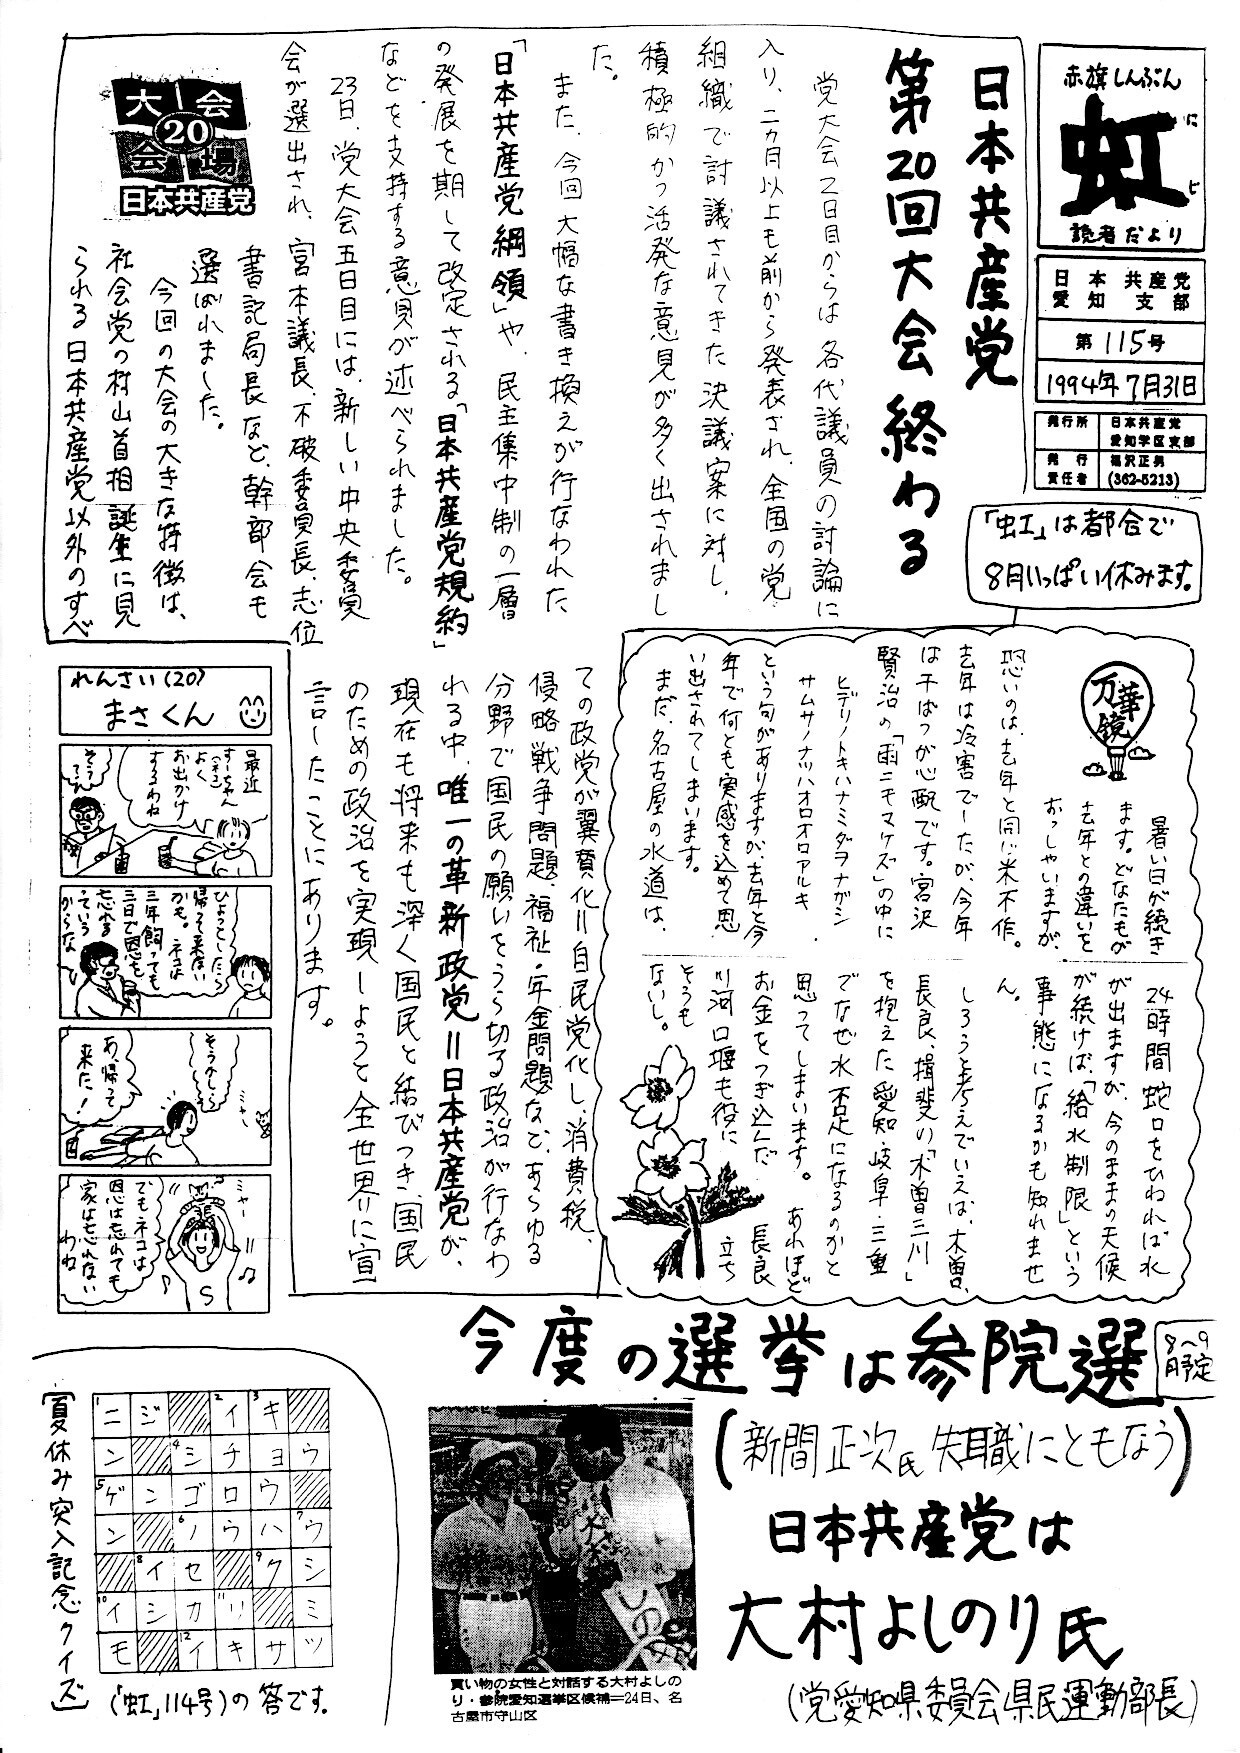 赤旗しんぶん
虹
にじ
読者だより
日本共産党
愛知支部
第115号
1994年7月31日
発行所
日本共産党
愛知学区支部
発行
責任者
福沢正男
(362-5213)
「虹」は都合で
8月いっぱい休みます。
日本共産党
第20回大会終わる
党大会2日目からは各代議員の討論に
入り、二カ月以上も前から発表され、全国の党
組織で討議されてきた決議案に対し、
積極的かつ活発な意見が多く出されまし
た。
また、今回大幅な書き換えが行なわれた
「日本共産党綱領」や、民主集中制の一層
の発展を期して改定される「日本共産党規約」
などを支持する意見が述べられました。
23日、党大会五日目には、新しい中央委員
会が選出され、宮本議長、不破委員長、志位
書記局長など、幹部会も
選ばれました。
今回の大会の大きな特徴は、
社会党の村山首相誕生に見
られる日本共産党以外のすべ
ての政党が翼賛化＝自民党化し、消費税、
侵略戦争問題、福祉・年金問題など、あらゆる
分野で国民の願いをうら切る政治が行なわ
れる中、唯一の革新政党＝日本共産党が、
現在も将来も深く国民と結びつき、国民
のための政治を実現しようと全世界に宣
言したことにあります。
大会
20
会場
日本共産党
万華鏡
暑い日が続き
ます。どなたもが
去年との違いを
おっしゃいますが、
恐いのは、去年と同じ米不作。
去年は冷害でーたが、今年
は干ばつが心配です。宮沢
賢治の「雨ニモマケズ」の中に
ヒデリノトキハナミダヲナガシ
サムサノナツハオロオロアルキ
という句がありますが、去年と今
年で何とも実感を込めて思
い出されてしまいます。
まだ、名古屋の水道は、
24時間蛇口をひねれば水
が出ますが、今のままの天候
が続けば、「給水制限」という
事態になるかも知れませ
ん。
しろうと考えでいえば、木曽、
長良、揖斐の「木曽三川」
を抱えた愛知・岐阜・三重
でなぜ水不足になるのかと
思ってしまいます。あれほど
お金をつぎ込んだ長良
川河口堰も役に立ち
そうも
ないし。
れんさい(20)
まさくん
最近
すーちゃん
(ネコ)
よく
お出かけ
するわね
そう?
ひょっとしたら
帰って来ない
かも。ネコは
三年飼っても
三日で恩を
忘れる
っていう
からな
そうかしら
ミャー
あ、帰って
来た!
ミャー
でもネコは
恩は忘れても
家は忘れない
わね
S
今度の選挙は参院選
8～9月予定
(新間正次氏失職にともなう)
日本共産党は
大村よしのり氏
(党愛知県委員会県民運動部長)
買い物の女性と対話する大村よしの
り・参院愛知選挙区候補＝24日、名
古屋市守山区
[夏休み突入記念クイズ]
1ニ ジ 2イ 3キ
ン 4シ チ ョ ウ
5ゲ ン ゴ ロ ウ
ン 6ノ ウ ハ 7ウ
8イ セ 9ク シ
10イ シ カ 11リ ミ
モ 12イ キ サ ツ
(「虹」114号)の答です。